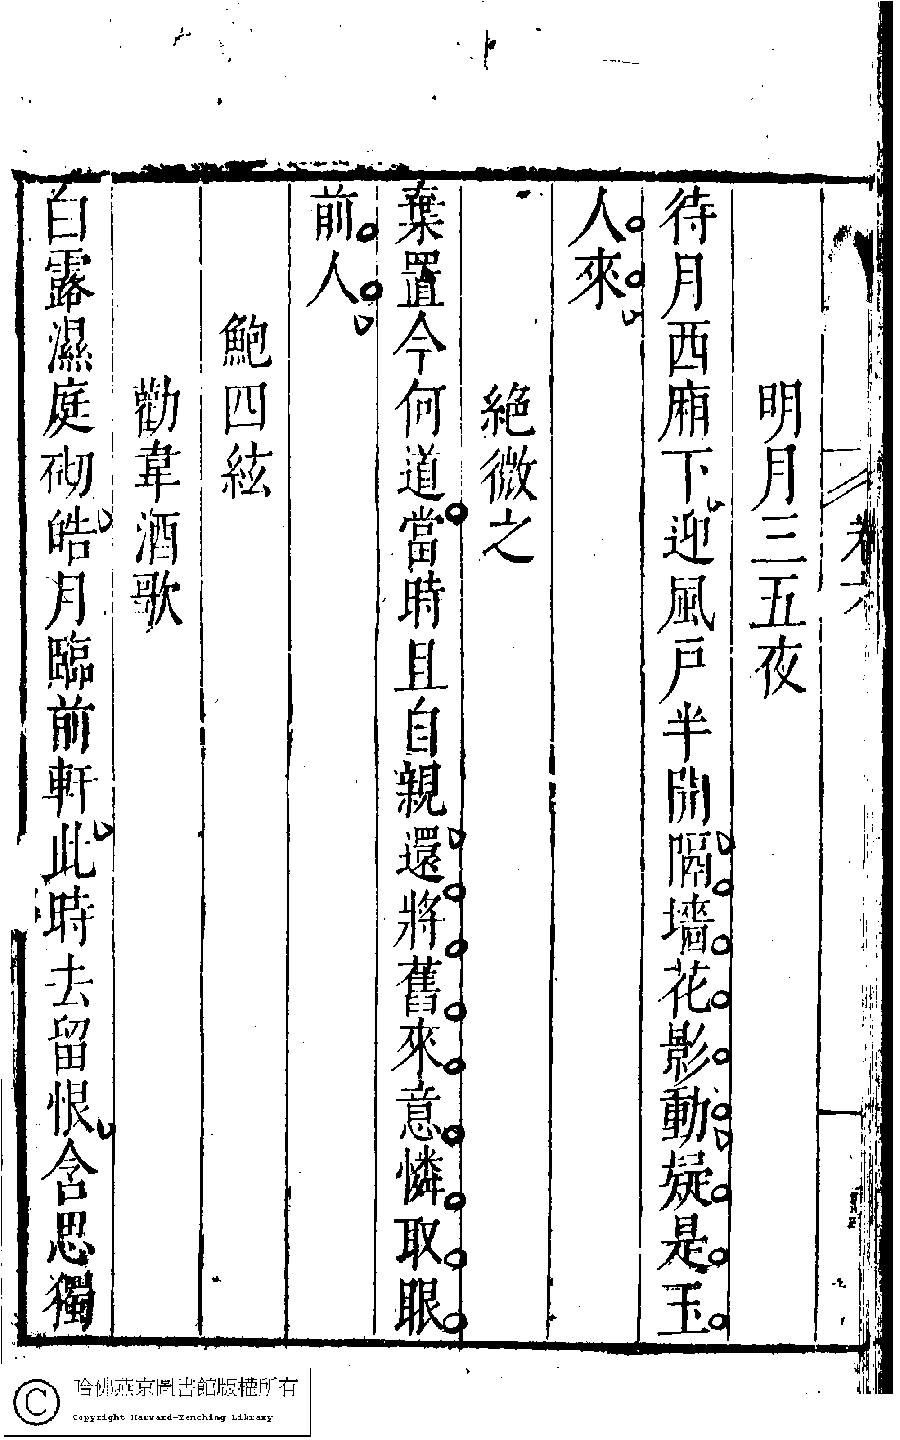 明月三五夜
待月西廂下迎風戸半開隔墻花影動疑是玉
人來
絶微之
棄置今何道當時且自親還將舊來意憐取眼
前人
鮑四絃
勸韋酒歌
白露濕庭砌皓月臨前軒此時去留恨含思獨
卷
哈佛燕京圖書館版權所有
Copyright Harvard-Yenching Library